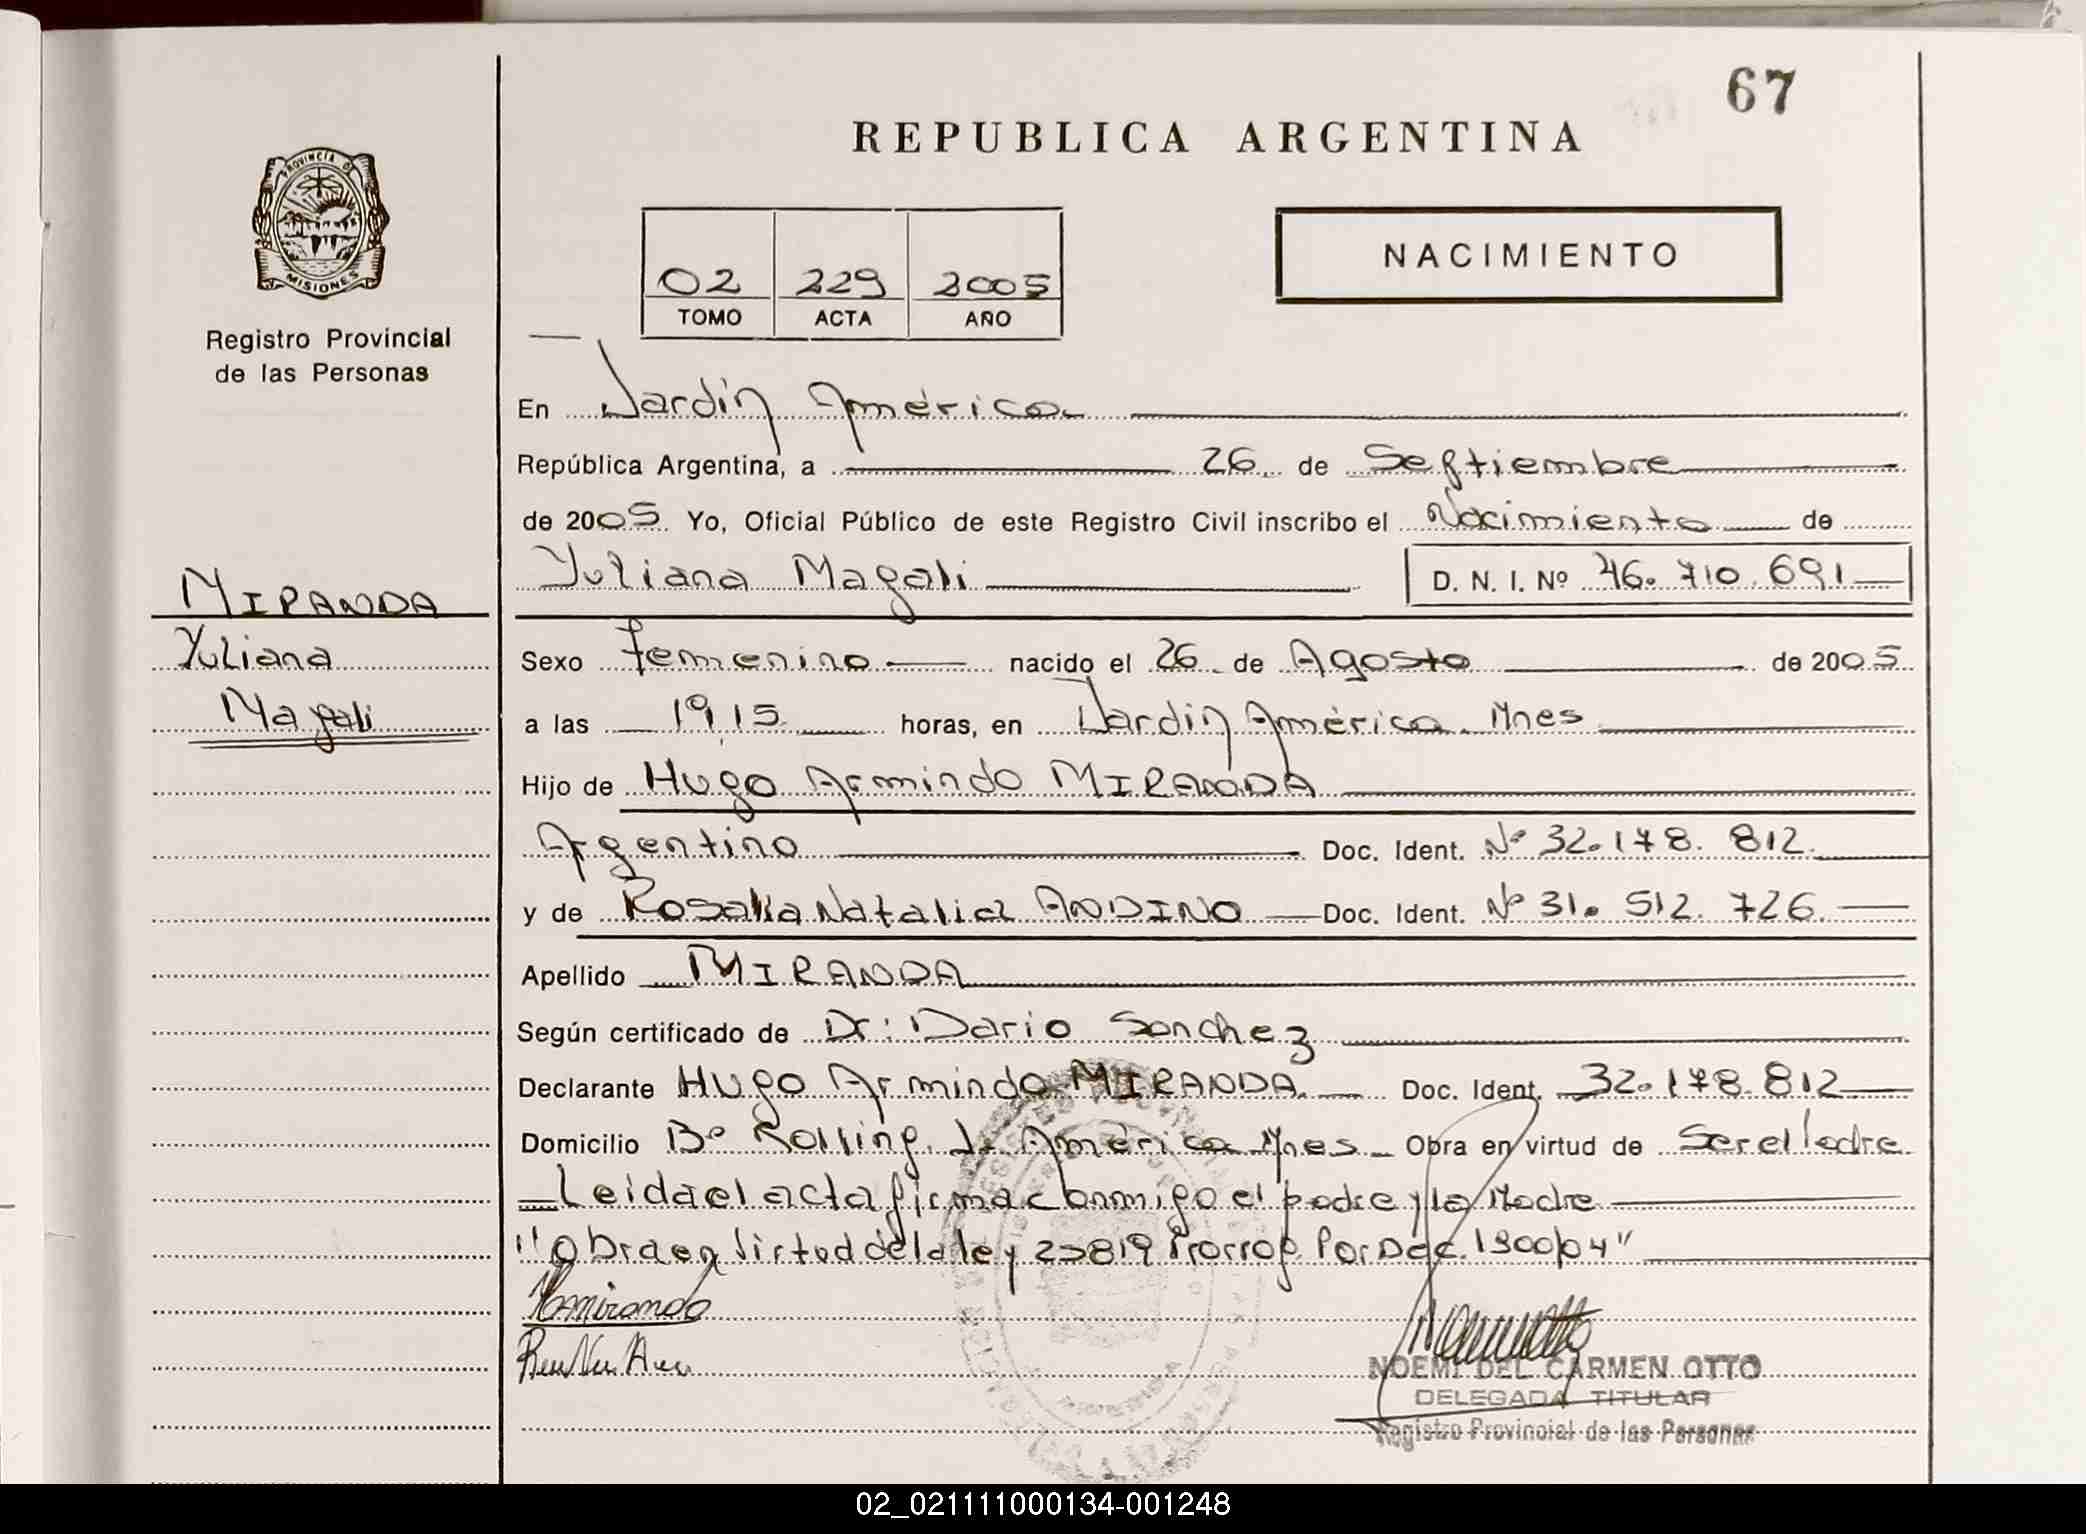 67
REPUBLICA ARGENTINA
PROVINCIA DE
MISIONES
Registro Provincial
de las Personas
02 229 2005
TOMO ACTA AÑO
NACIMIENTO
En Jardín América
República Argentina, a 26 de Septiembre
de 2005 Yo, Oficial Público de este Registro Civil inscribo el Nacimiento de
Yuliana Magali D. N. I. Nº 46.710.691
MIRANDA
Yuliana
Magali
Sexo Femenino nacido el 26 de Agosto de 2005
a las 19,15 horas, en Jardín América. Mnes
Hijo de Hugo Armindo MIRANDA
Argentino Doc. Ident. Nº 32.178.812
y de Rosalia Natalia ANDINO Doc. Ident. Nº 31.512.726
Apellido MIRANDA
Según certificado de Dr: Dario Sanchez
Declarante Hugo Armindo MIRANDA Doc. Ident. 32.178.812
Domicilio Bº Rolling. J. América Mnes Obra en virtud de Ser el Padre
Leida el acta firma conmigo el padre y la Madre
"Obra en Virtud de la ley 25819 Prorrog. Por Dec. 1300/04"
NOEMI DEL CARMEN OTTO
DELEGADA TITULAR
Registro Provincial de las Personas
02_021111000134-001248